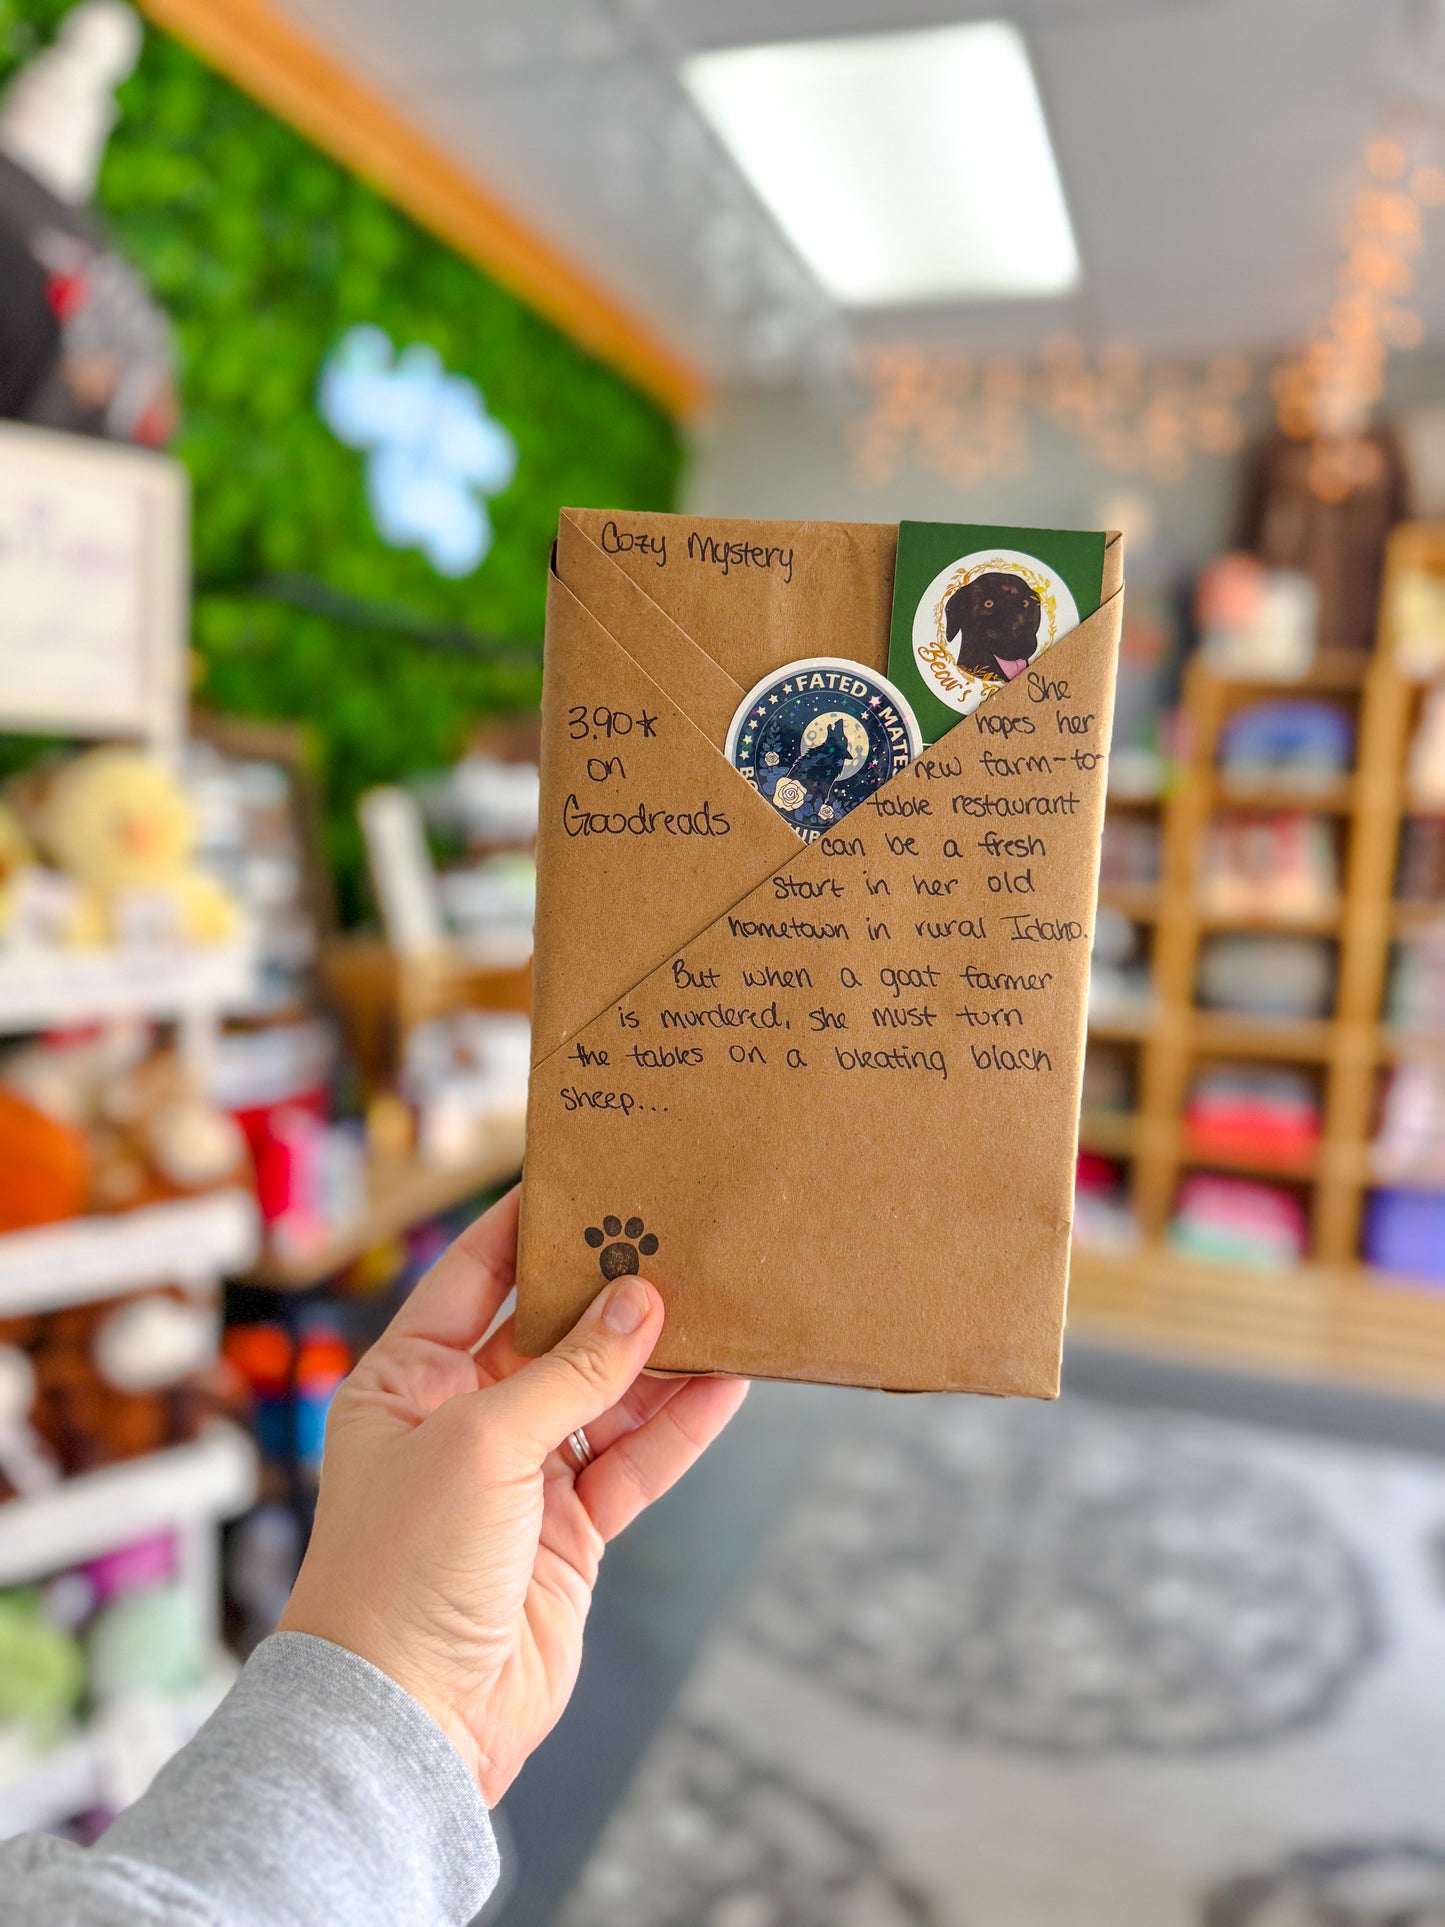 Cozy Mystery
Bear's
FATED MATE
3.90★
on
Goodreads
She
hopes her
new farm-to-
table restaurant
can be a fresh
start in her old
hometown in rural Idaho.
But when a goat farmer
is murdered, she must turn
the tables on a bleating black
sheep...